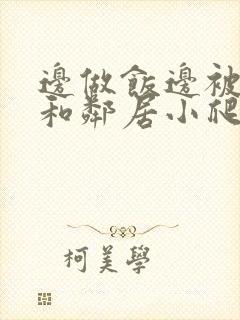 邊做飯邊被
和鄰居小爬
柯美學